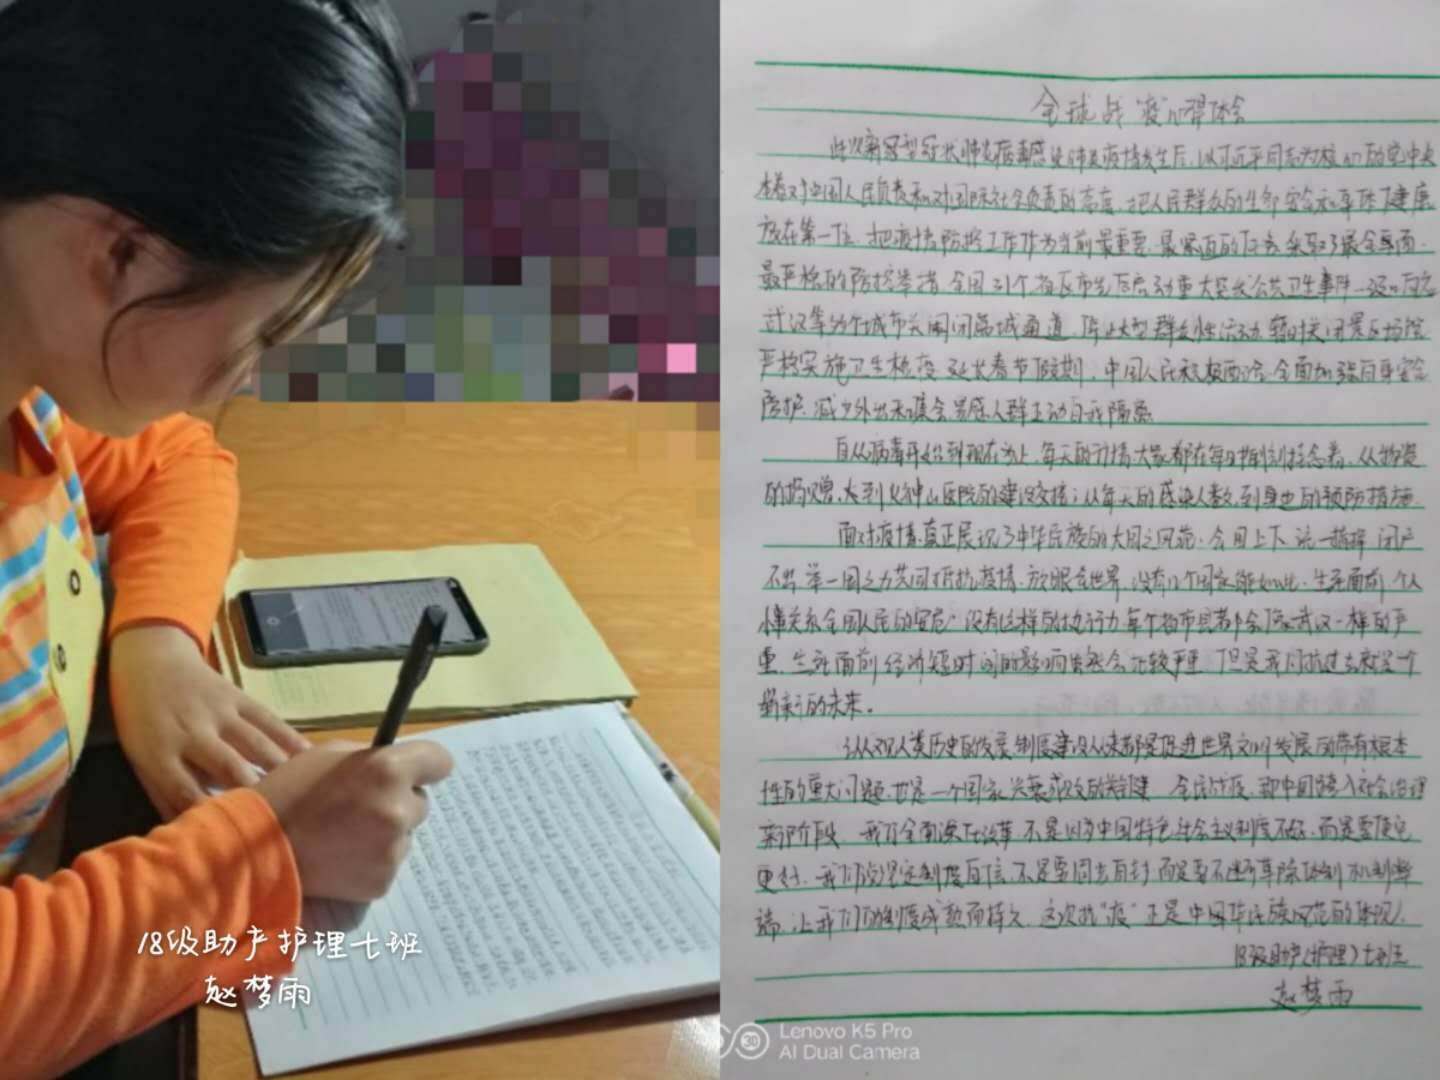 18级助产护理七班
赵梦雨
全球战"疫"心得体会
此次新冠型冠状肺炎病毒感染肺炎疫情发生后,以习近平同志为核心的党中央
本着对中国人民负责和对国际社会负责的态度,把人民群众的生命安全和身体健康
放在第一位,把疫情防控工作作为当前最重要、最紧迫的任务,采取了最全面、
最严格的防控举措,全国31个省区市先后启动重大突发公共卫生事件一级响应
武汉等多个城市关闭出城通道,停止大型群众性活动,暂时关闭景区场馆
严格实施卫生检疫,延长春节假期,中国人民积极配合,全面加强自身安全
防护,减少外出和集会,易感人群主动自我隔离
自从病毒开始到现在为止,每天的疫情大家都在每时每刻挂念着,从物资
的捐赠,大到火神山医院的建设交接;从每天的感染人数,到身边的预防措施
面对疫情,真正展现了中华民族的大国之风范,全国上下,统一指挥,闭户
不出,举一国之力共同抵抗疫情,放眼全世界,没有几个国家能如此,生死面前,个人
情关系全国人民的安危,没有这样的执行力,每个省市县都会像武汉一样的严
重,生死面前,经济短时间的影响虽然会比较严重,但是我们抗过去就是一个
崭新的未来。
认从观人类历史的发展,制度建设从来都是促进世界文明发展的带有根本
性的重大问题,也是一个国家兴衰成败的关键,全民战疫,即中国跨入社会治理
新阶段,我们全面深化改革,不是因为中国特色社会主义制度不好,而是要使它
更好,我们说坚定制度自信,不是要固步自封,而是要不断革除体制机制弊
端,让我们的制度成熟而持久,这次抗"疫"正是中国华民族风范的体现。
18级助产(护理)七班
赵梦雨
Lenovo K5 Pro
AI Dual Camera